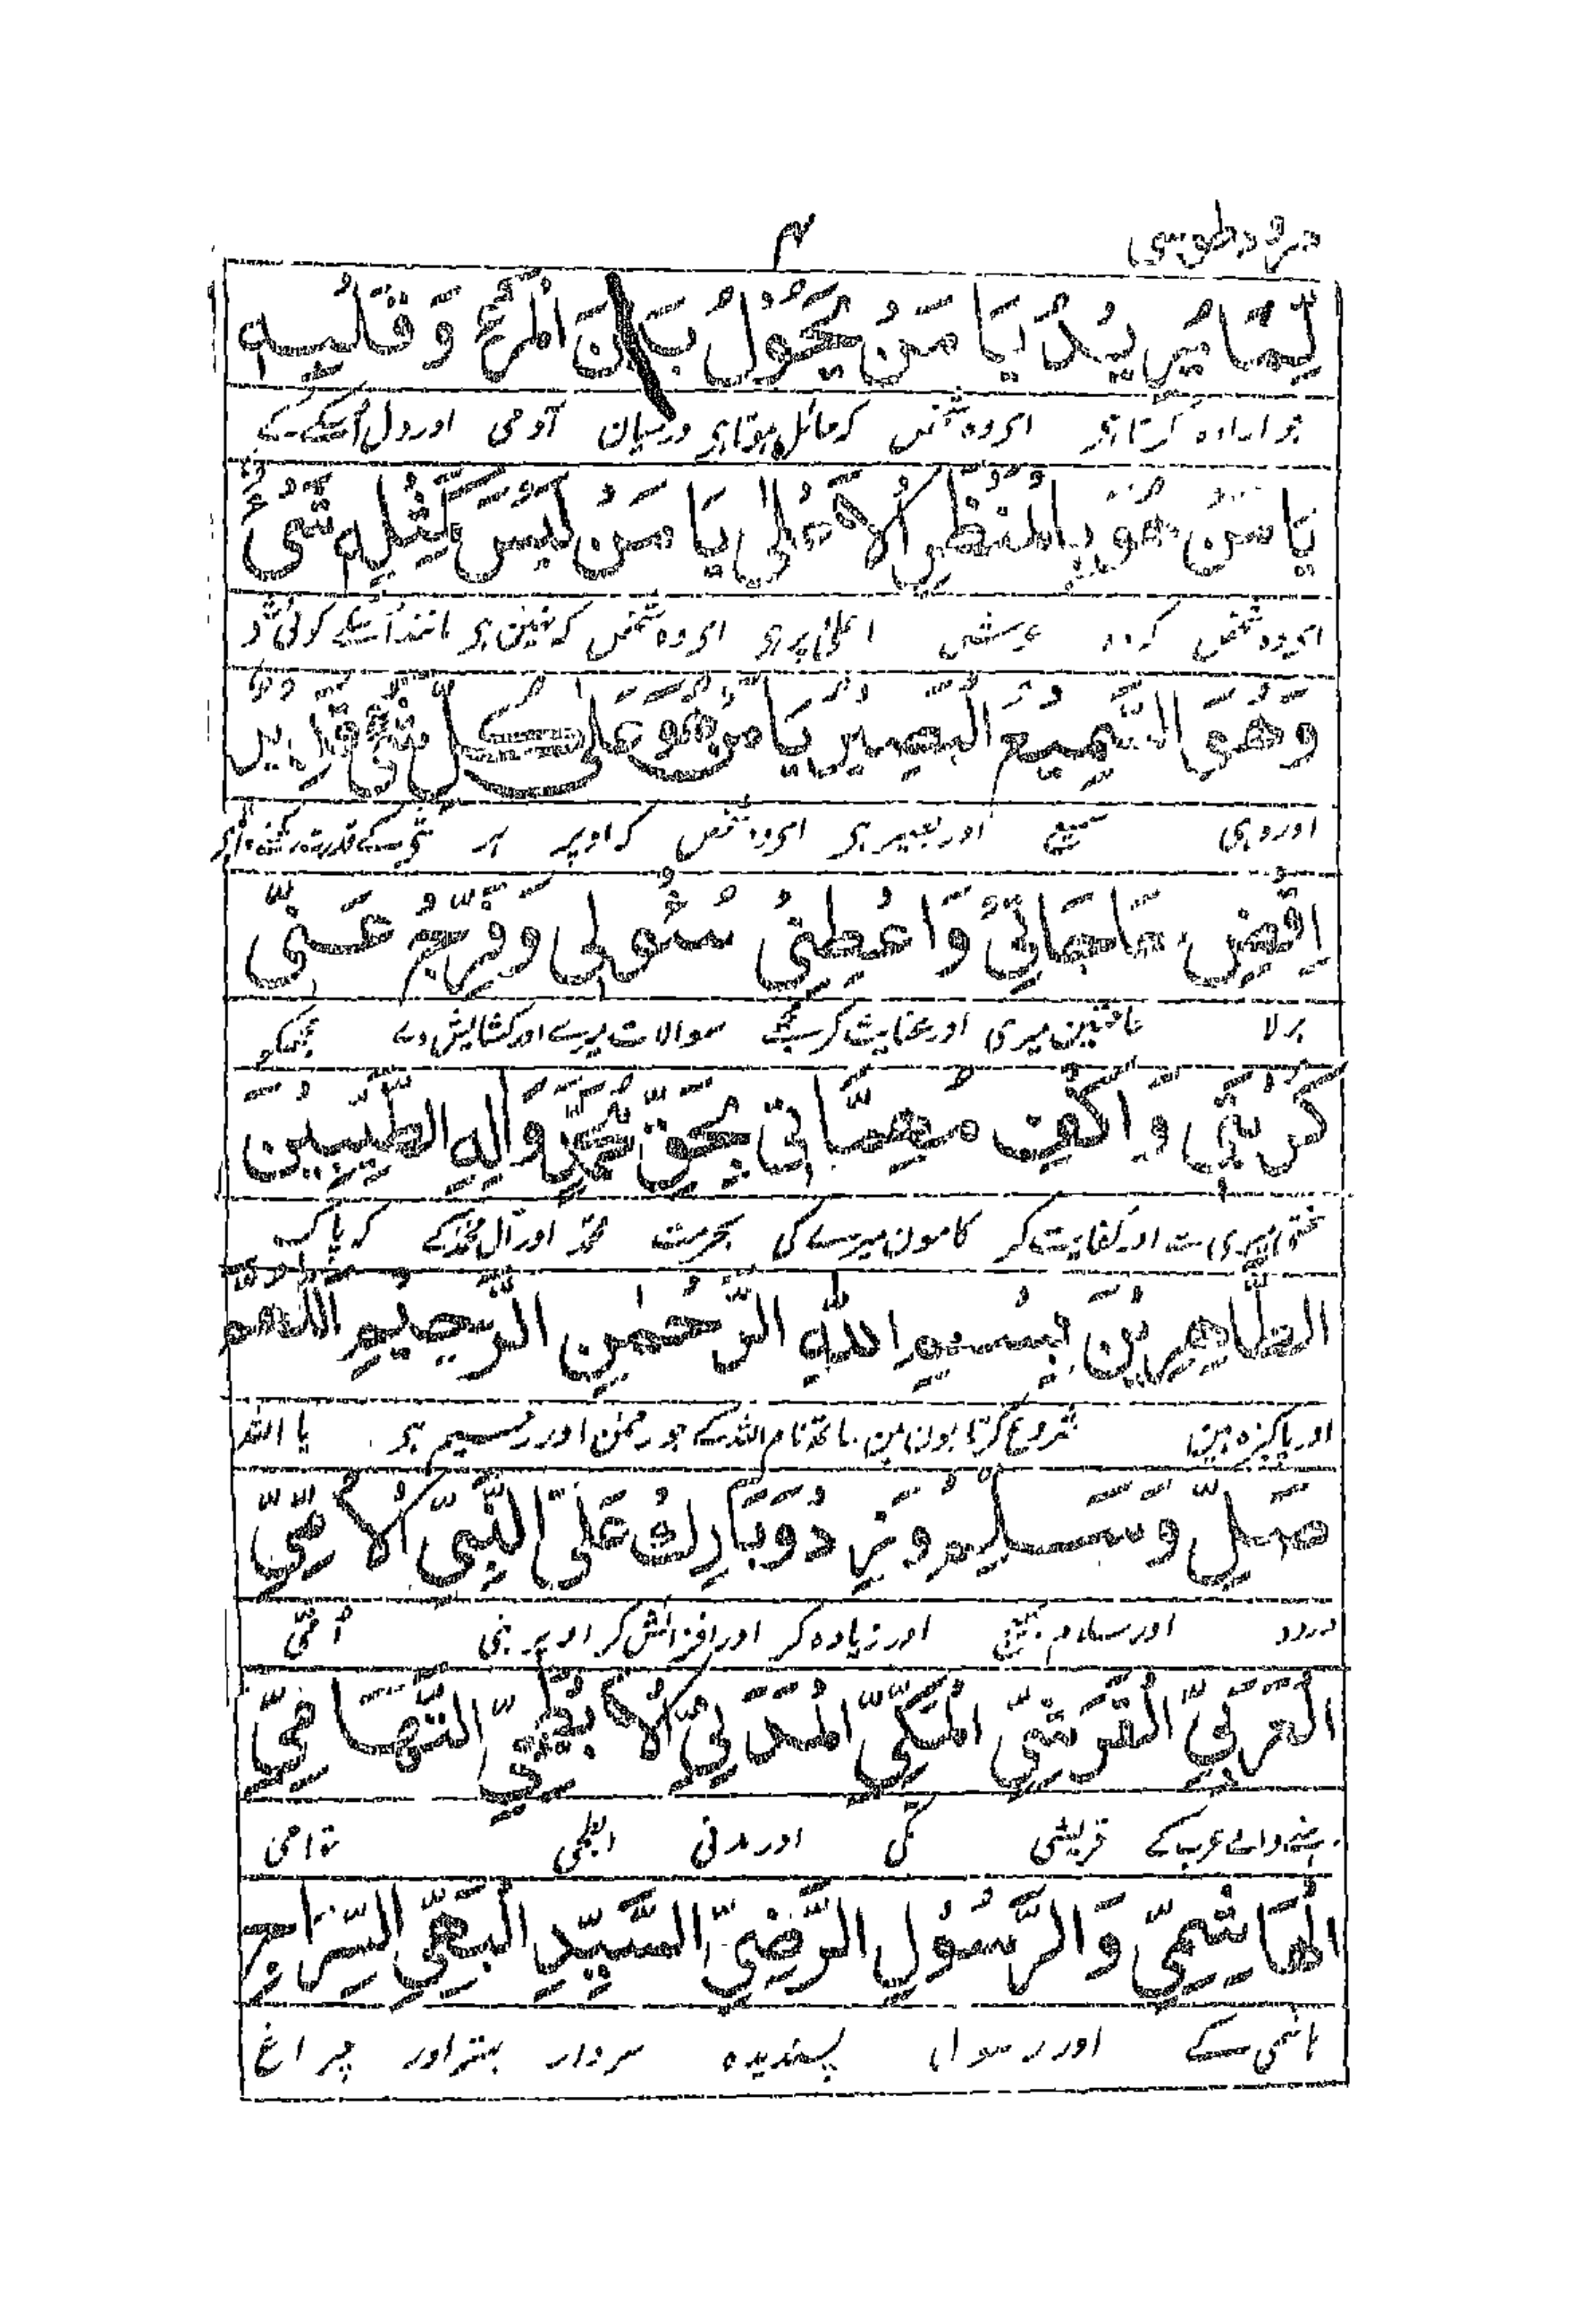 درود طوسی ۴
لِّمَا يُرِيْدُ يَا مَنْ يَحُوْلُ بَيْنَ الْمَرْءِ وَ قَلْبِهٖ
جو ارادہ کرتا ہر ای وہ شخص کہ حائل ہوتا ہر درمیان آدمی اور دل اُسکے کے
يَا مَنْ هُوَ بِالْمَنْظَرِ الْاَعْلٰى يَا مَنْ لَيْسَ كَمِثْلِهٖ شَىْءٌ
ای وہ شخص کہ وہ اعلیٰ پر ہر ای وہ شخص کہ نہین ہر مانند اُسکے کوئی شی
وَهُوَ السَّمِيْعُ الْبَصِيْرُ يَا مَنْ هُوَ عَلٰى كُلِّ شَىْءٍ قَدِيْرٌ
اور وہی سمیع اور بصیر ہر ای وہ شخص کہ اوپر ہر شی کے قدرت رکھنے والا ہر
اِقْضِ حَاجَاتِىْ وَ اَعْطِنِىْ سُئُولِى وَ فَرِّجْ عَنِّىْ
بر لا حاجتین میری اور عنایت کر مجھے سوالات میرے اور کشایش دے مجھکو
كُرْبَتِىْ وَ اكْفِ مُهِمَّاتِىْ بِحَقِّ مُحَمَّدٍ وَّاٰلِهِ الطَّيِّبِيْنَ
سختی میری سے اور کفایت کر کامون میرے کی بحرمت محمد اور آل محمد کے کہ پاک
الطَّاهِرِيْنَ بِسْمِ اللهِ الرَّحْمٰنِ الرَّحِيْمِ اَللّٰهُمَّ
اور پاکیزہ ہین شروع کرتا ہون مین ساتھ نام اللہ کے جو رحمٰن اور رحیم ہر یا اللہ
صَلِّ وَ سَلِّمْ وَ زِدْ وَ بَارِكْ عَلَى النَّبِىِّ الْاُمِّىِّ
درود اور سلام بھیج اور زیادہ کر اور افزائش کر اوپر نبی اُمّی
الْعَرَبِىِّ الْقُرَشِىِّ الْمَكِّىِّ الْمَدَنِىِّ الْاَبْطَحِىِّ التِّهَامِىِّ
رہنے والے عرب کے قریشی مکی اور مدنی ابطحی تہامی
الْهَاشِمِىِّ وَ الرَّسُوْلِ الرَّضِىِّ السَّيِّدِ الْبَهِىِّ السِّرَاجِ
ہاشمی کے اور رسول پسندیدہ سردار بہتر اور چراغ